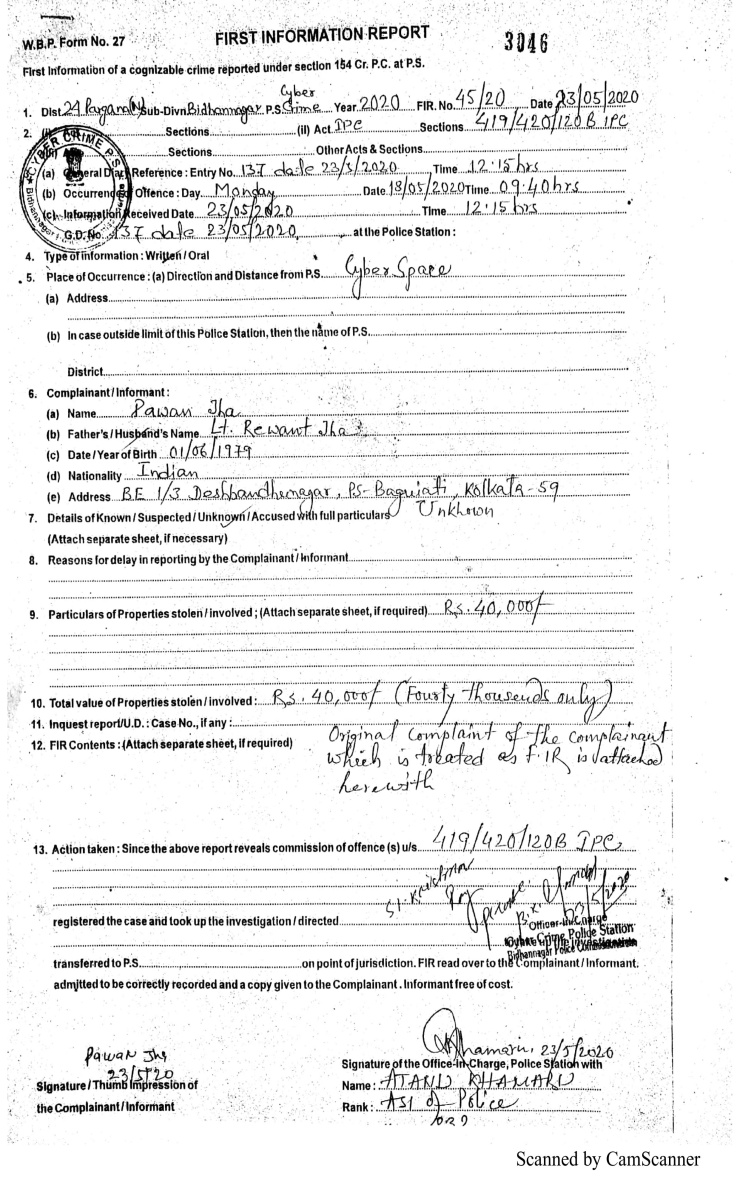 W.B.P. Form No. 27
FIRST INFORMATION REPORT
3046
First Information of a cognizable crime reported under section 154 Cr. P.C. at P.S.
1. Dist. 24 Parganas (N) Sub-Divn Bidhannagar P.S. Cyber Crime Year 2020 FIR. No. 45/20 Date 23/05/2020
2. Sections (ii) Act IPC Sections 419/420/120B IPC
Sections Other Acts & Sections
(a) General Diary Reference : Entry No. 137 date 23/5/2020 Time 12:15 hrs
(b) Occurrence of Offence : Day Monday Date 18/05/2020 Time 09:40 hrs
(c) Information Received Date 23/05/2020 Time 12:15 hrs
G.D. No. 137 date 23/05/2020 at the Police Station :
CYBER CRIME P.S.
4. Type of information : Written / Oral
5. Place of Occurrence : (a) Direction and Distance from P.S. Cyber Space
(a) Address
(b) In case outside limit of this Police Station, then the name of P.S.
District
6. Complainant / Informant :
(a) Name Pawan Jha
(b) Father's / Husband's Name Lt. Rewant Jha
(c) Date / Year of Birth 01/06/1979
(d) Nationality Indian
(e) Address BE 1/3 Deshbandhunagar, P.S- Baguiati, Kolkata-59
7. Details of Known / Suspected / Unknown / Accused with full particulars Unkhown
(Attach separate sheet, if necessary)
8. Reasons for delay in reporting by the Complainant / Informant
9. Particulars of Properties stolen / involved ; (Attach separate sheet, if required) Rs. 40,000/-
10. Total value of Properties stolen / involved : Rs. 40,000/- (Fourty thousands only)
11. Inquest report / U.D. : Case No., if any :
12. FIR Contents : (Attach separate sheet, if required) Original complaint of the complainant
which is treated as F.IR is attached
herewith
13. Action taken : Since the above report reveals commission of offence (s) u/s 419/420/120B IPC
SI. Krishna
23/5/2020
registered the case and took up the investigation / directed
Officer-in-Charge
Cyber Crime Police Station
Bidhannagar Police Commissionerate
to take up the investigation
transferred to P.S. on point of jurisdiction. FIR read over to the Complainant / Informant.
admitted to be correctly recorded and a copy given to the Complainant . Informant free of cost.
Pawan Jha
23/5/20
Signature / Thumb Impression of
the Complainant / Informant
Khamaru, 23/5/2020
Signature of the Office-in-Charge, Police Station with
Name : ATANU KHAMARU
Rank : ASI of Police
Scanned by CamScanner